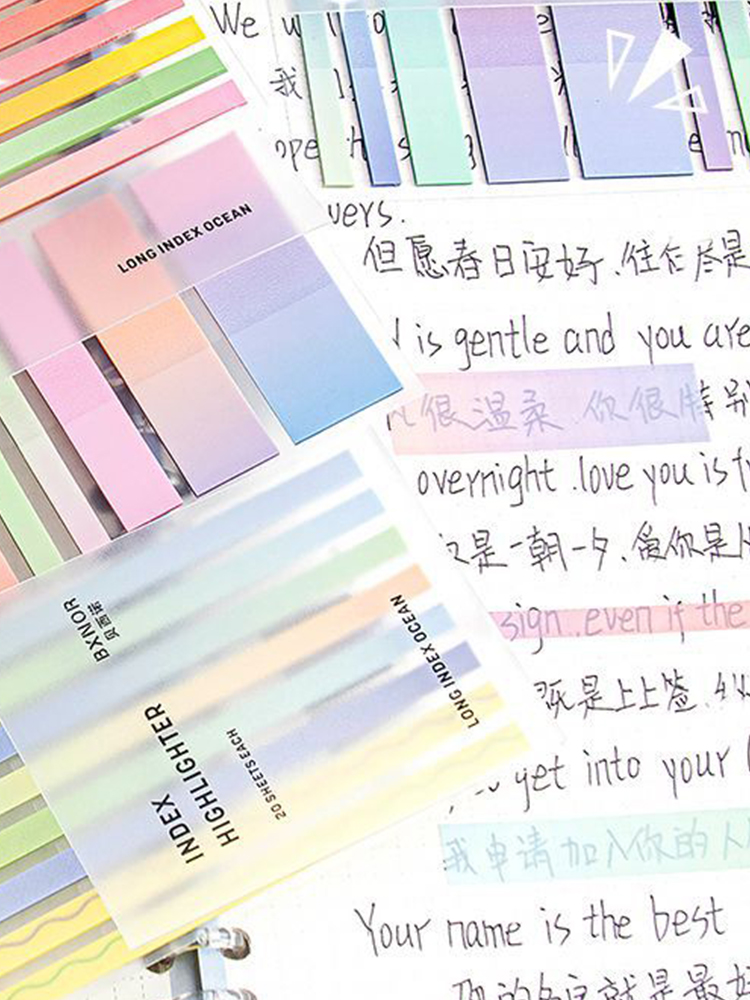 We
我
ope
vers.
但愿春日安好.往后尽是
is gentle and you are
很温柔.你很特别
overnight .love you is f
是一朝一夕.爱你是
sign .even if the
既是上上签.纵
get into your
我申请加入你的人
Your name is the best
你的名字就是最好
LONG INDEX OCEAN
BXNOR
贝西诺
INDEX
HIGHLIGHTER
20 SHEETS EACH
LONG INDEX OCEAN